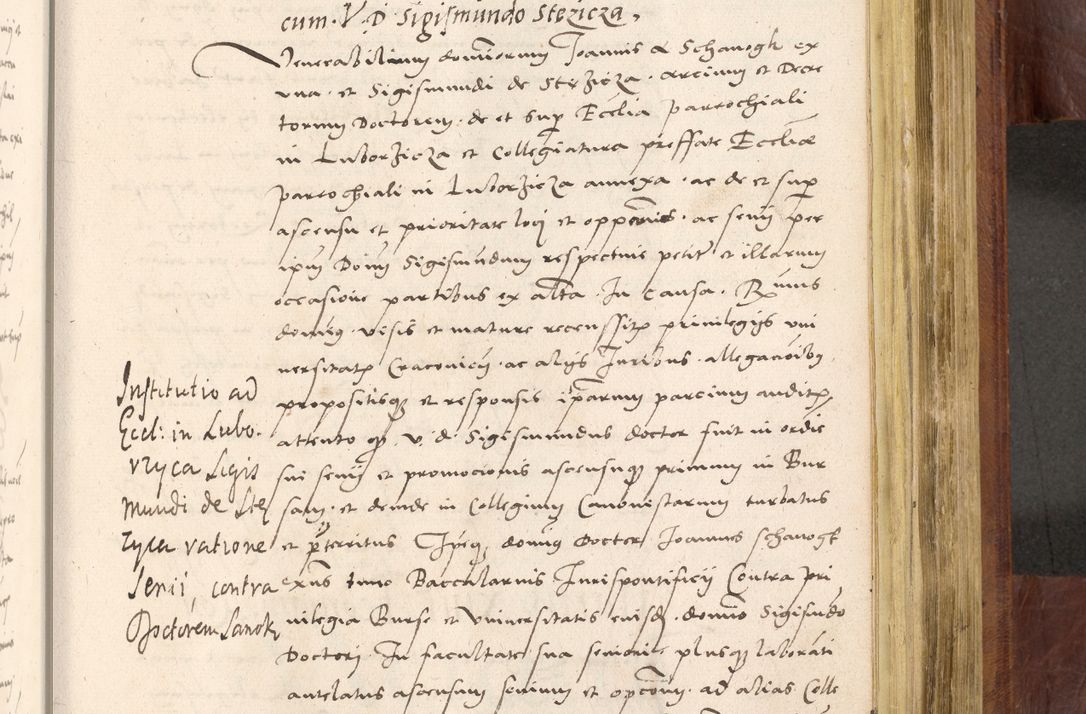 cum. V. D Sigismundo Stezicza,
Venerabilium dominorum Joannis a Schanogk ex
una. et Sigismundi de Stężicza. arcium et Decre
torum Doctorem. de et sup Ecclia Parrochiali
in Luborzicza et Collegiatura preffate Eccliae
parrochiali in Luborzicza annexa. ac de et sup
ascensu et prioritate loci et oppcionis. ac senij per
ipm Dnum Sigismundum respective petit et illarum
occasione partibus ex alta. In causa. Rmus
dominus. visis et mature recensitis privilegijs uni
versitatis Cracovien. ac alijs Juribus. allegacionibus
propositisque et responsis ipsarum parcium auditis,
attento quod. V. d. Sigismundus doctor fuit in ordine
sui senij et promocionis ascensusque primum in Bur
sam. et deinde in Collegium Canonistarum turbatus
et preteritus Ipseque, dominus Doctor Joannes Schanogk
exns tunc Baccalarius Jurispontificij Contra pri
vilegia Burse et Universitatis eiusdem. domino Sigismundo
Doctori. In facultate sua seniori plusque laboranti
antelatus ascensum senium et opcionem. ad alias Colle
Institutio ad
Eccl: in Lubo.
rzyca Sigis
mundi de Stę
zyca ratione
Senii, contra
Doctorem Sanok